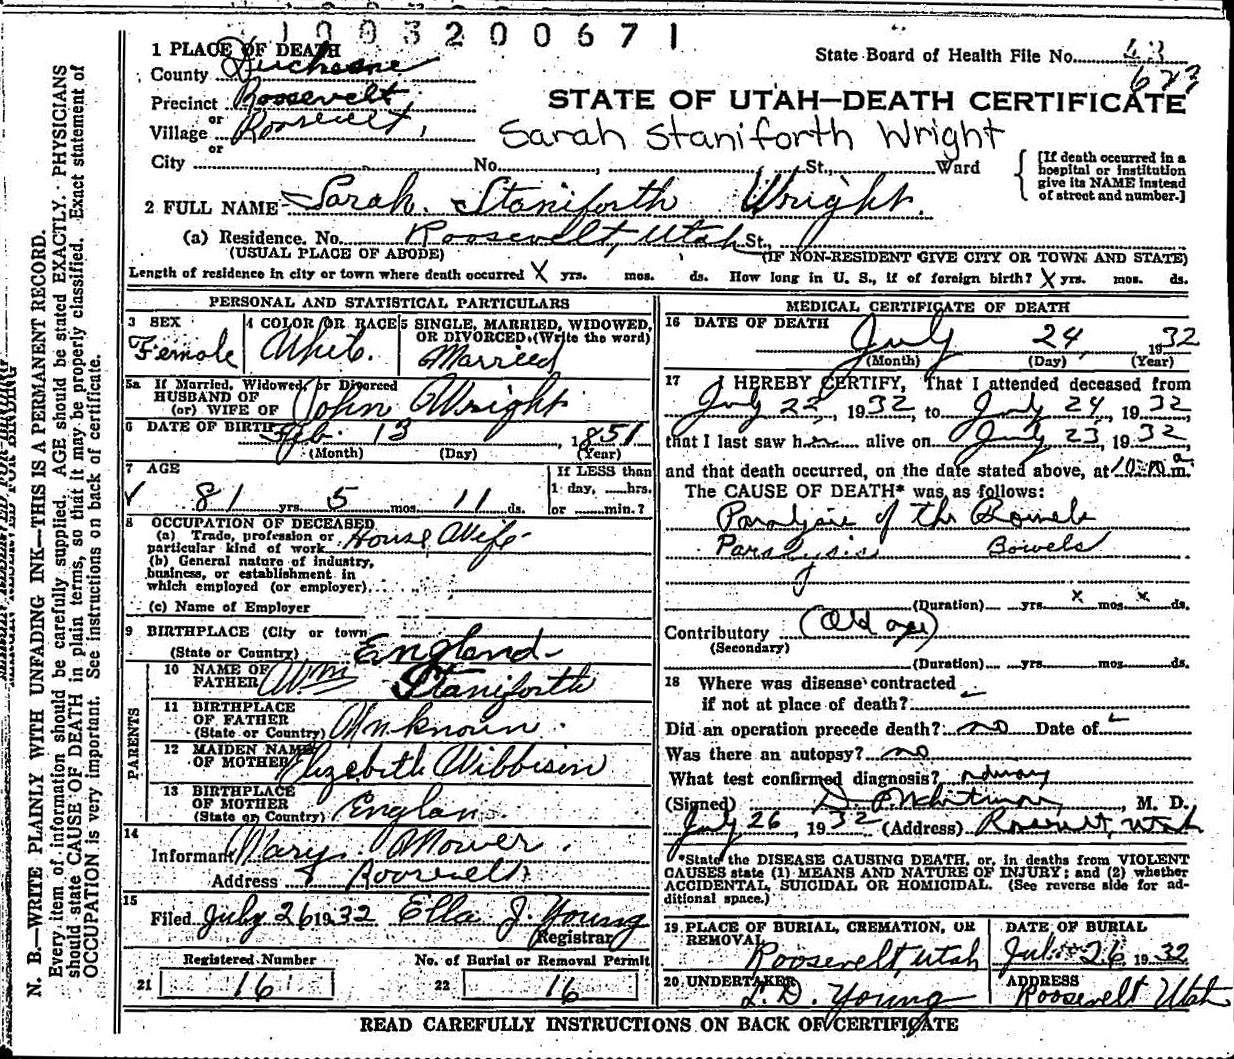 1003200671
1 PLACE OF DEATH
State Board of Health File No. 43
County Duchesne
623
Precinct Roosevelt,
or
STATE OF UTAH—DEATH CERTIFICATE
Village Roosevelt,
or
Sarah Staniforth Wright
City No. , St., Ward
[If death occurred in a hospital or institution give its NAME instead of street and number.]
2 FULL NAME Sarah Staniforth Wright.
(a) Residence. No. Roosevelt, Utah St.,
(USUAL PLACE OF ABODE) (IF NON-RESIDENT GIVE CITY OR TOWN AND STATE)
Length of residence in city or town where death occurred X yrs. mos. ds. How long in U. S., if of foreign birth? X yrs. mos. ds.
PERSONAL AND STATISTICAL PARTICULARS
3 SEX 4 COLOR OR RACE 5 SINGLE, MARRIED, WIDOWED,
OR DIVORCED. (Write the word)
Female White. Married
5a If Married, Widowed, or Divorced
HUSBAND OF
(or) WIFE OF John Wright
6 DATE OF BIRTH Feb. 13, 1851
(Month) (Day) (Year)
7 AGE If LESS than
1 day, hrs.
81 yrs. 5 mos. 11 ds. or min.?
8 OCCUPATION OF DECEASED
(a) Trade, profession or
particular kind of work House Wife
(b) General nature of industry,
business, or establishment in
which employed (or employer)
(c) Name of Employer
9 BIRTHPLACE (City or town
(State or Country) England
PARENTS
10 NAME OF
FATHER Wm Staniforth
11 BIRTHPLACE
OF FATHER
(State or Country) Unknown.
12 MAIDEN NAME
OF MOTHER Elizebeth Wibbisin
13 BIRTHPLACE
OF MOTHER
(State or Country) England.
14
Informant Mary Mower.
Address Roosevelt
15
Filed July 26 1932 Ella J. Young
Registrar
Registered Number No. of Burial or Removal Permit
21 16 22 16
MEDICAL CERTIFICATE OF DEATH
16 DATE OF DEATH July 24 1932
(Month) (Day) (Year)
17 I HEREBY CERTIFY, That I attended deceased from
July 22, 1932, to July 24, 1932
that I last saw her alive on July 23, 1932,
and that death occurred, on the date stated above, at 10 a m.
The CAUSE OF DEATH* was as follows:
Paralysis of the Bowels
Paralysis Bowels
(Duration) yrs. x mos. x ds.
Contributory (Old age)
(Secondary)
(Duration) yrs. mos. ds.
18 Where was disease contracted
if not at place of death?
Did an operation precede death? no Date of
Was there an autopsy? no
What test confirmed diagnosis?
(Signed) M. D.
July 26, 1932 (Address) Roosevelt, Utah
*State the DISEASE CAUSING DEATH, or, in deaths from VIOLENT
CAUSES state (1) MEANS AND NATURE OF INJURY; and (2) whether
ACCIDENTAL, SUICIDAL OR HOMICIDAL. (See reverse side for ad-
ditional space.)
19 PLACE OF BURIAL, CREMATION, OR
REMOVAL
Roosevelt, Utah
DATE OF BURIAL
July 26 1932
20 UNDERTAKER
L. D. Young
ADDRESS
Roosevelt Utah
READ CAREFULLY INSTRUCTIONS ON BACK OF CERTIFICATE
N. B.—WRITE PLAINLY WITH UNFADING INK—THIS IS A PERMANENT RECORD.
Every item of information should be carefully supplied. AGE should be stated EXACTLY. PHYSICIANS
should state CAUSE OF DEATH in plain terms, so that it may be properly classified. Exact statement of
OCCUPATION is very important. See instructions on back of certificate.